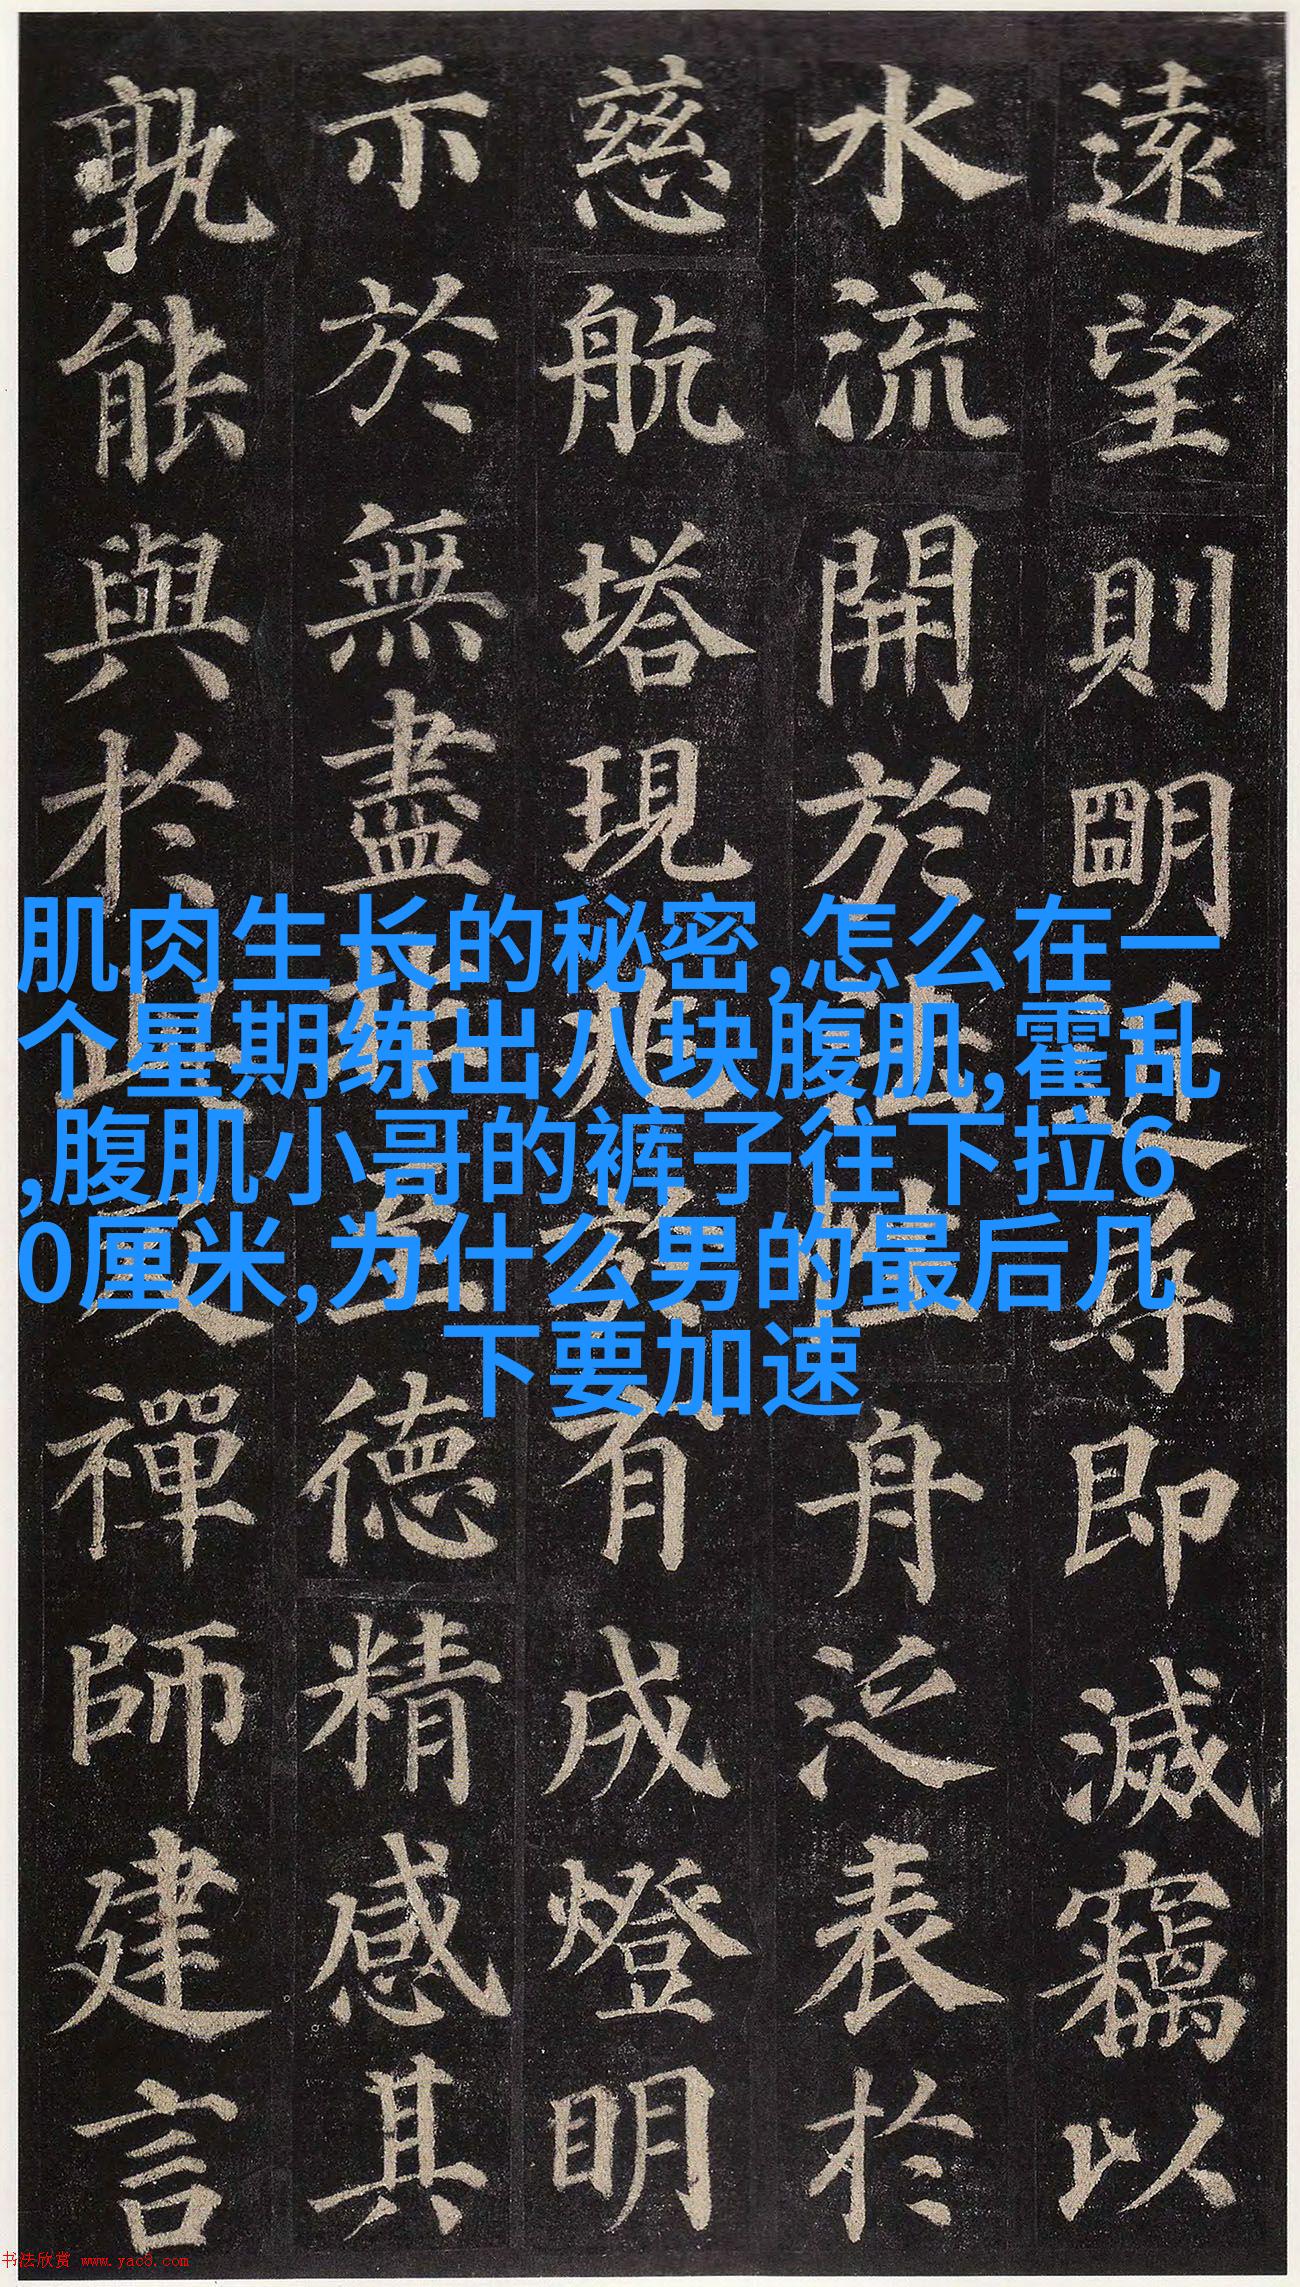 遠望則朙近尋即滅竊以
水流開於法性舟泛表於
慈航塔現兆於有成燈明
示於無盡非至德精感其
孰能與於此及禪師建言
肌肉生长的秘密,怎么在一
个星期练出八块腹肌,霍乱
,腹肌小哥的裤子往下拉6
0厘米,为什么男的最后几
下要加速
书法欣赏 www.yac8.com